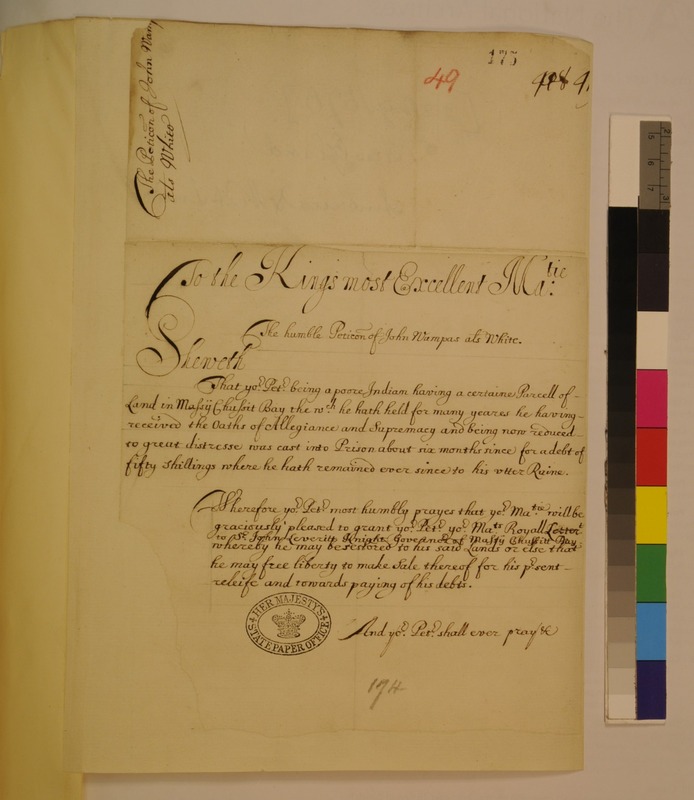 The Peticon of John Wam
als White
49
173
To the Kings most Excellent Ma:tie
The humble Peticon of John Wampas als White.
Sheweth
That yor. Petr. being a poore Indian having a certaine Parcell of
Land in Massÿ Chussit Bay the wch he hath held for many yeares he having
received the Oaths of Allegiance and Supremacy and being now reduced
to great distresse was cast into Prison about six months since for a debt of
fifty shillings where he hath remained ever since to his vtter Ruine.
Wherefore yor. Petr. most humbly prayes that yor. Matie will be
graciously pleased to grant yor. Petr. yor. Mats Royall Letter
to Sr. John Leveritt Knight Governor of Massy Chussit Bay
whereby he may be restored to his said Lands or else that
he may free liberty to make Sale thereof for his psent
releife and towards paying of his debts.
And yor. Petr. shall ever pray &c
HER MAJESTY'S
STATE PAPER OFFICE
194